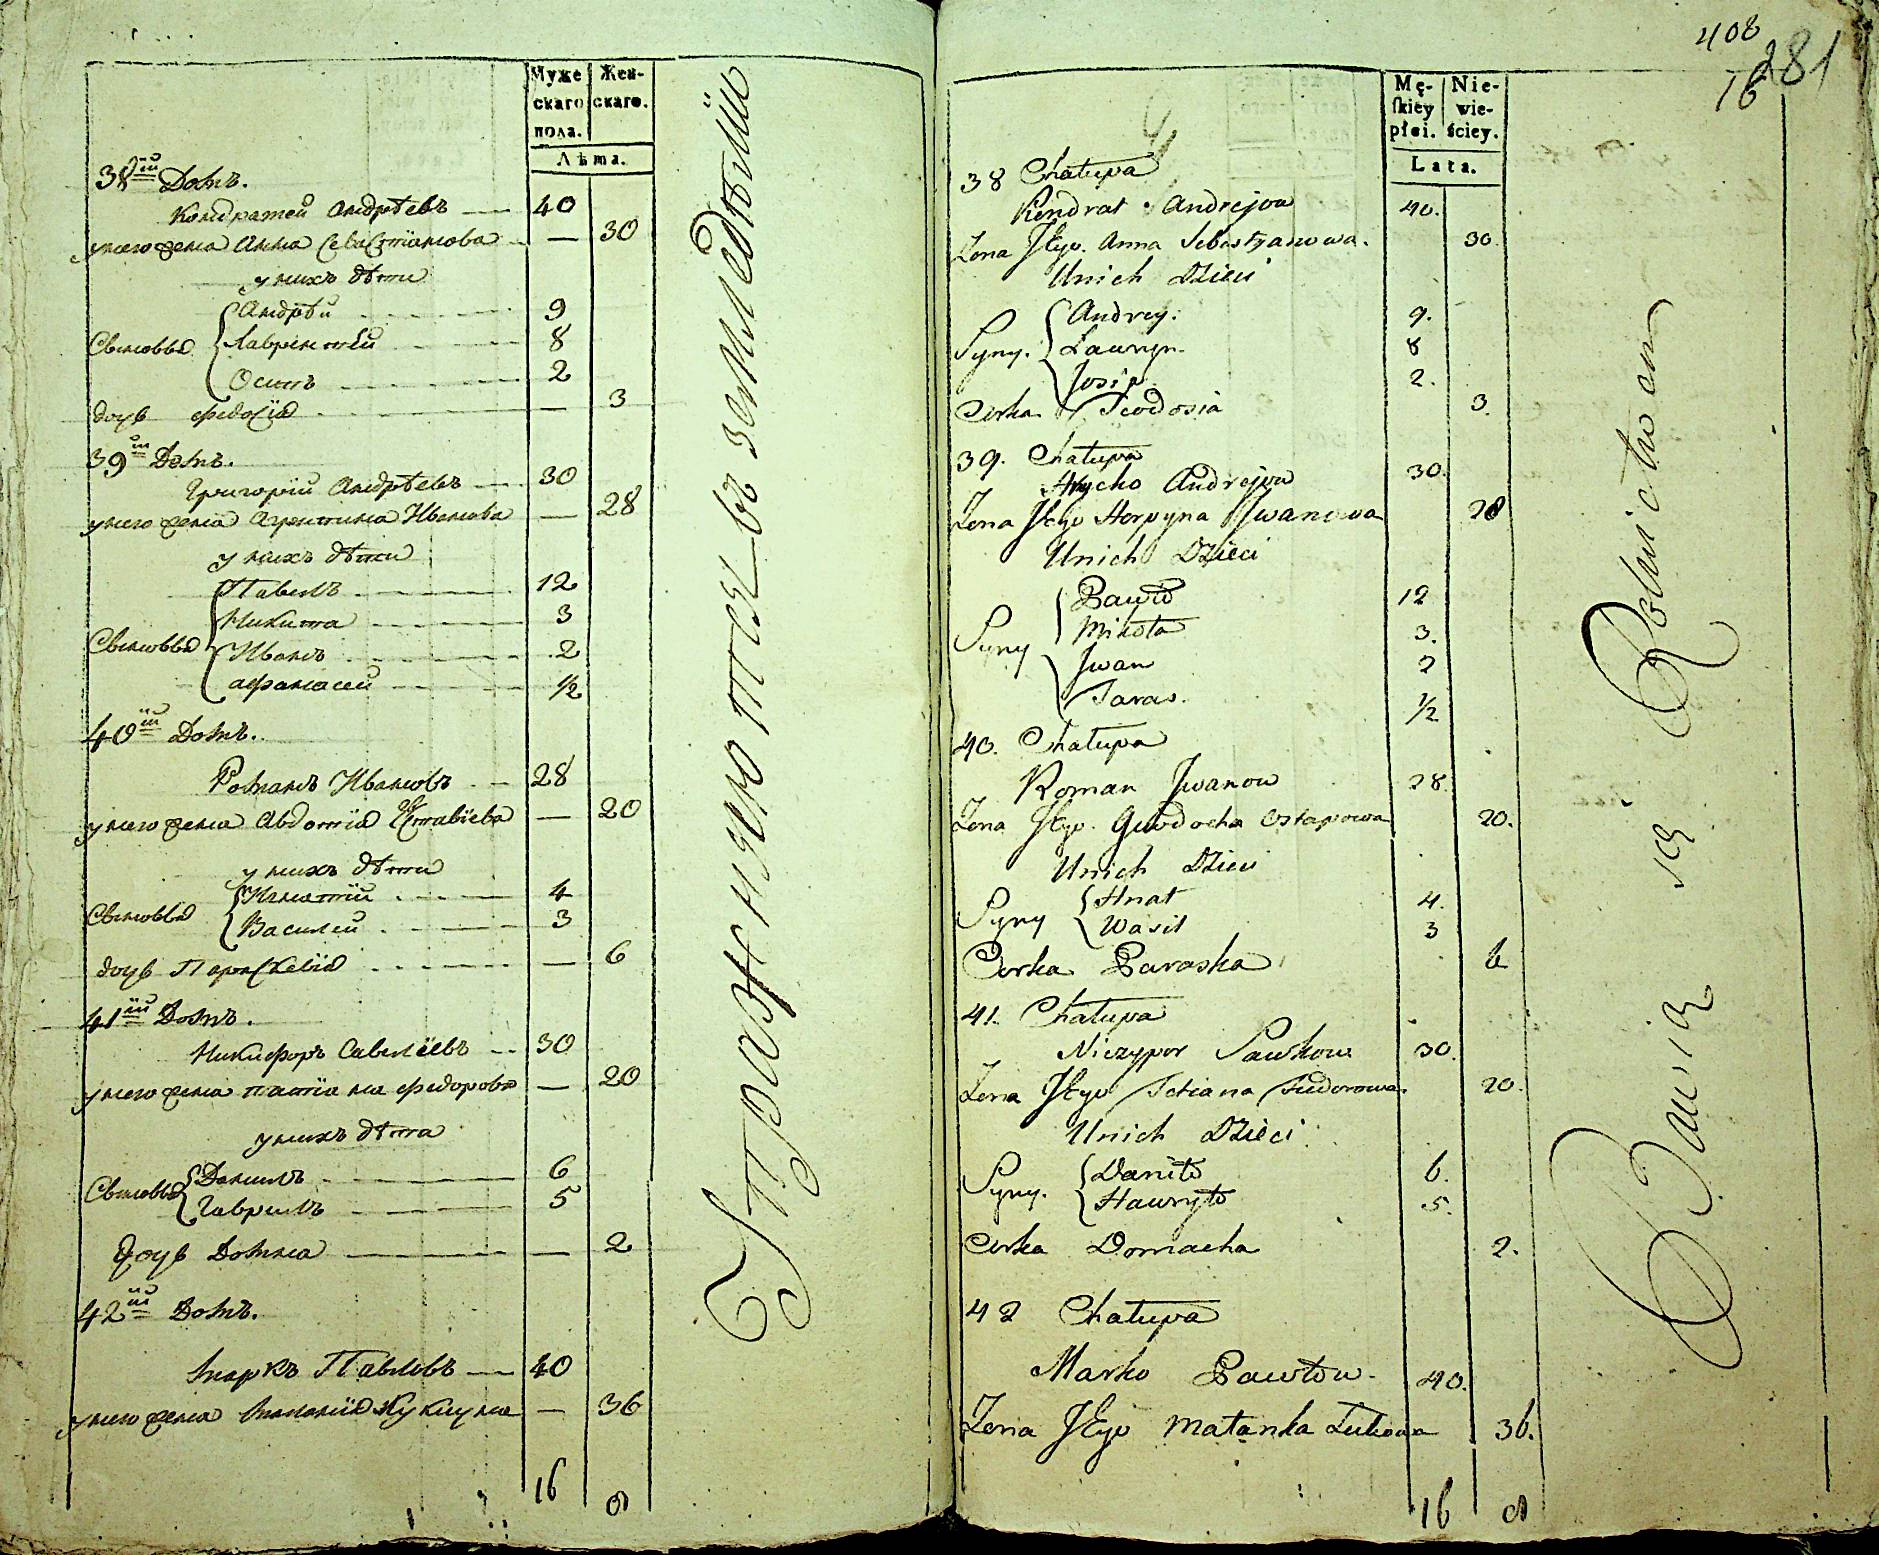 Муже
скаго
пола.
Жен-
скаго.
Лѣта.
38й Домъ.
Кондратей Андрѣевъ 40
у него жена Анна Севастіянова — 30
у нихъ дѣти
Сыновья
Андрѣй 9
Лаврентей 8
Осипъ 2
дочь Федосія — 3
39й Домъ.
Григорій Андрѣевъ 30
у него жена Агрипина Иванова — 28
у нихъ дѣти
Павелъ 12
Никита 3
Сыновья
Иванъ 2
Афанасей ½
40й Домъ.
Романъ Ивановъ 28
у него жена Авдотія — 20
у нихъ дѣти
Сыновья
Игнатій 4
Василей 3
дочь Параскевія — 6
41й Домъ.
Никифоръ Савелѣевъ 30
у него жена татіяна Федорова — 20
у нихъ дѣти
Сыновья
Данилъ 6
Гаврилъ 5
Дочь Домна — 2
42й Домъ.
Маркъ Павловъ 40
у него жена Маланія — 36
16 8
Упражняются въ земледѣліи
408
281
16
Mę-
skiey
płci.
Nie-
wie-
ściey.
Lata.
38 Chałupa
Kondrat Andrejow 40.
Żona Jego Anna Sebestyanowa. 30.
U nich Dzieci
Syny.
Andrey. 9.
Ławryn 8
Josip 2.
Corka Teodosia 3.
39. Chałupa
Hrycko Andrejow 30.
Żona Jego Horpyna Iwanowa 28
U nich Dzieci
Syny
Pawło 12
Mikoła 3.
Jwan 2
Taras. ½
40. Chałupa
Roman Jwanow 28.
Żona Jego Ostapowa 20.
U nich Dzieci
Syny
Hnat 4.
Wasil 3
Corka Paraska 6
41. Chałupa
Niczypor Sawkow 30.
Żona Jego Tetiana Fiedorowa 20.
U nich Dzieci
Syny.
Daniło 6.
Hawryło 5.
Corka Domacha 2.
42 Chałupa
Marko Pawłow 40.
Żona Jego Małanka Łukowa 36.
16 8
Bawią się Rolnictwem